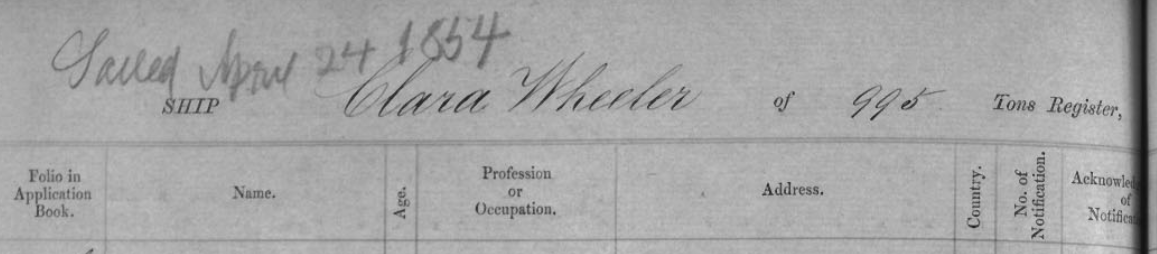 Sailed April 24 1854
SHIP Clara Wheeler of 995 Tons Register,
Folio in Application Book. Name. Age. Profession or Occupation. Address. Country. No. of Notification. Acknowled of Notifica